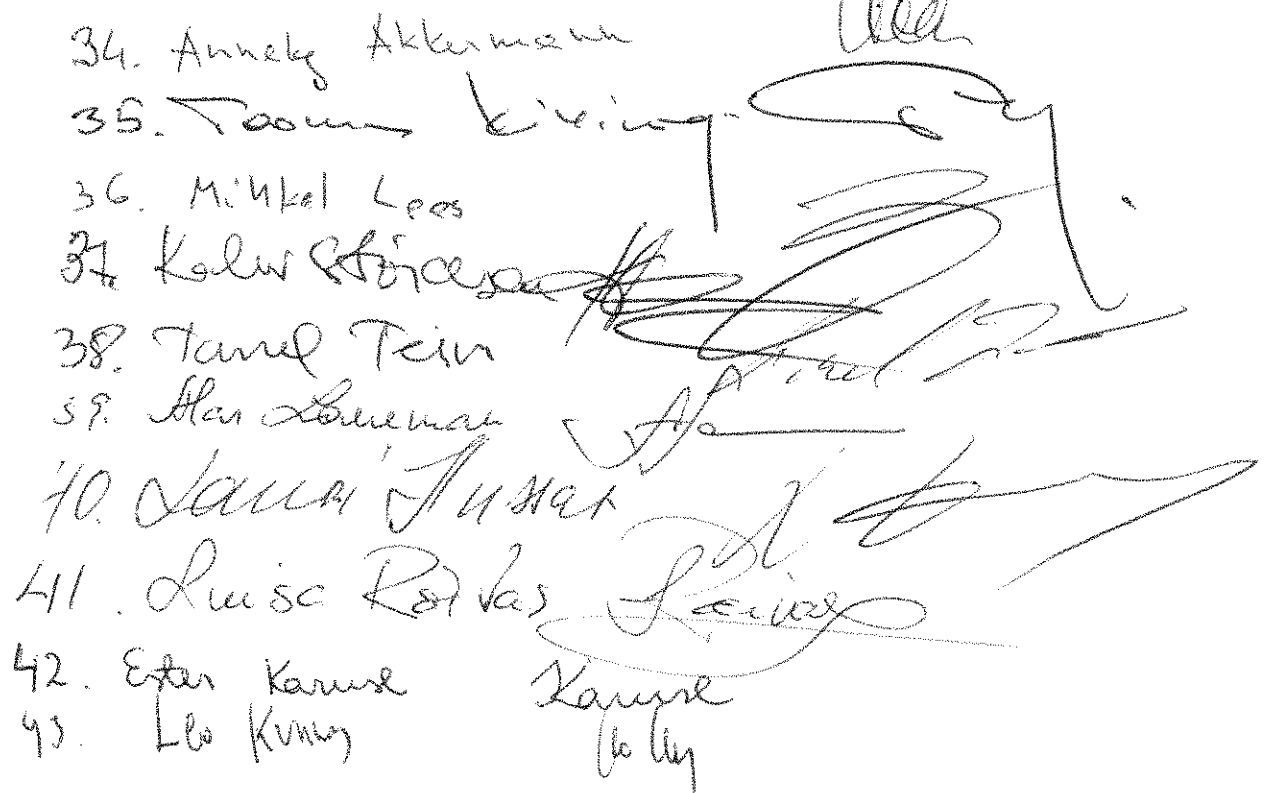 34. Annely Akkermann
35. Toomas Kivimägi
36. Mihkel Lees
37. Kalev Stoicescu
38. Tanel Tein
39. Alar Laneman
40. Lauri Hussar
41. Luisa Rõivas Rõivas
42. Ester Karuse Karuse
43. Leo Kunnas